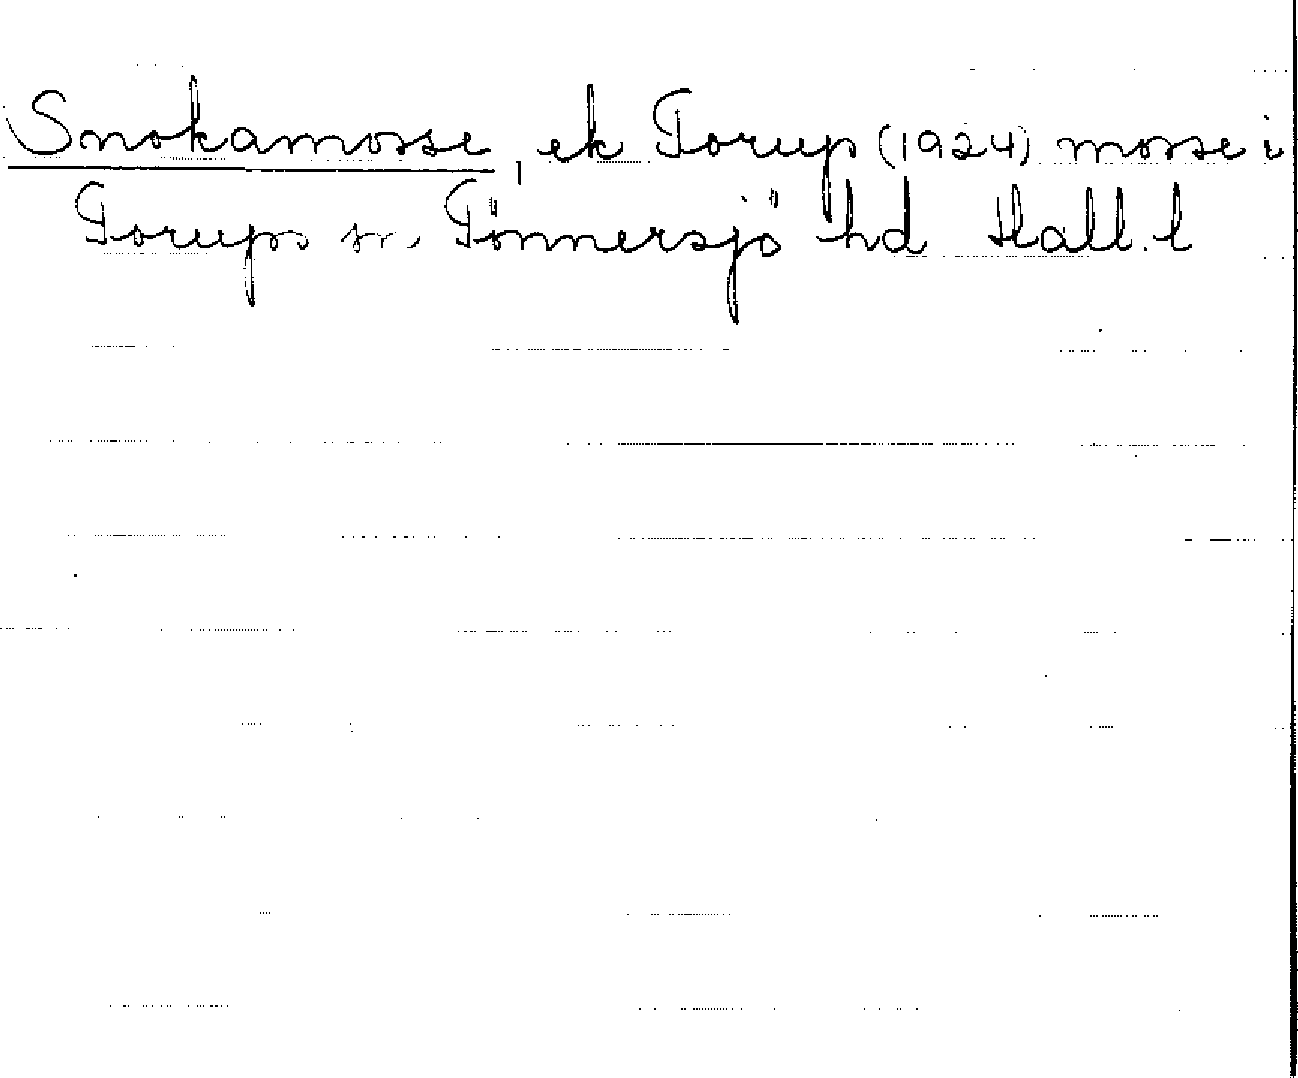 Snokamosse, ek Torup (1924) mosse i
Torups sn. Tönnersjö hd Hall. l